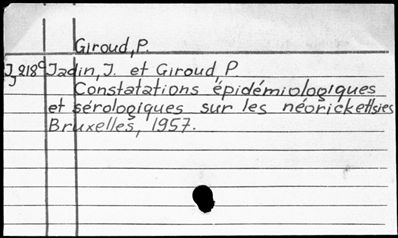 Giroud, P.
J 218c Jadin, J. et Giroud, P
Constatations épidémiologiques
et sérologiques sur les néorickettsies
Bruxelles, 1957.